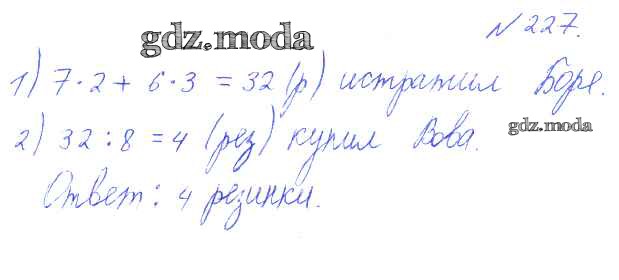 №227.
gdz.moda
1) 7·2 + 6·3 = 32 (р) истратил Боре.
2) 32 : 8 = 4 (рез) купил Вова.
gdz.moda
Ответ: 4 резинки.